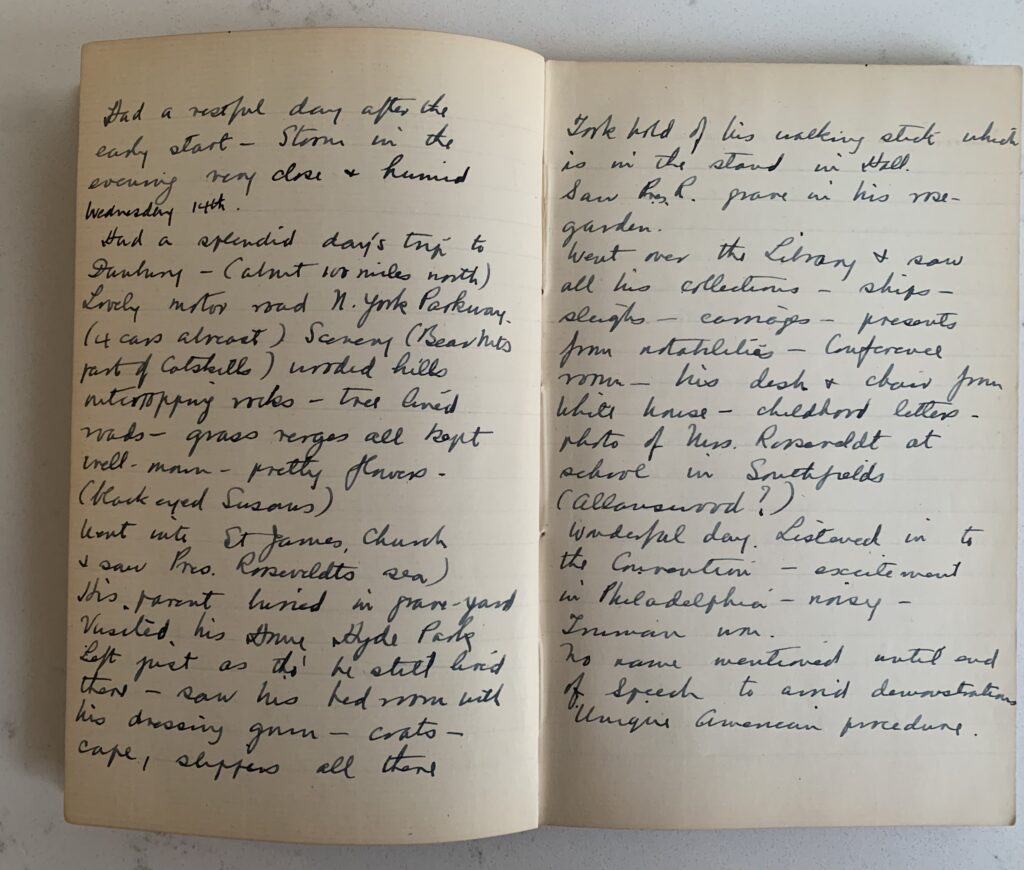 Had a restful day after the
early start – Storm in the
evening very close & humid
Wednesday 14th.
Had a splendid day's trip to
Danbury – (about 100 miles north)
Lovely motor road N. York Parkway.
(4 cars abreast) Scenery (Bear Mts
part of Catskills) wooded hills
outcropping rocks – tree lined
roads – grass verges all kept
well-mown – pretty flowers –
(black eyed Susans)
Went into St James, Church
& saw Pres. Roseveldts sea)
His parent buried in grave-yard
Visited his Home Hyde Park
Left just as tho' he still lived
there – saw his bed room with
his dressing gown – coats –
cape, slippers all there
Took hold of his walking stick which
is in the stand in Hall.
Saw Pres. R. grave in his rose-
garden.
Went over the Library & saw
all his collections – ships –
sleighs – carriages – presents
from notabilities – Conference
room – his desk & chair from
White house – childhood letters –
photo of Mrs. Roseveldt at
school in Southfields
(Allanswood?)
Wonderful day. Listened in to
the Convention – excitement
in Philadelphia – noisy –
Truman won.
No name mentioned until end
of Speech to avoid demonstrations
Unique American procedure.